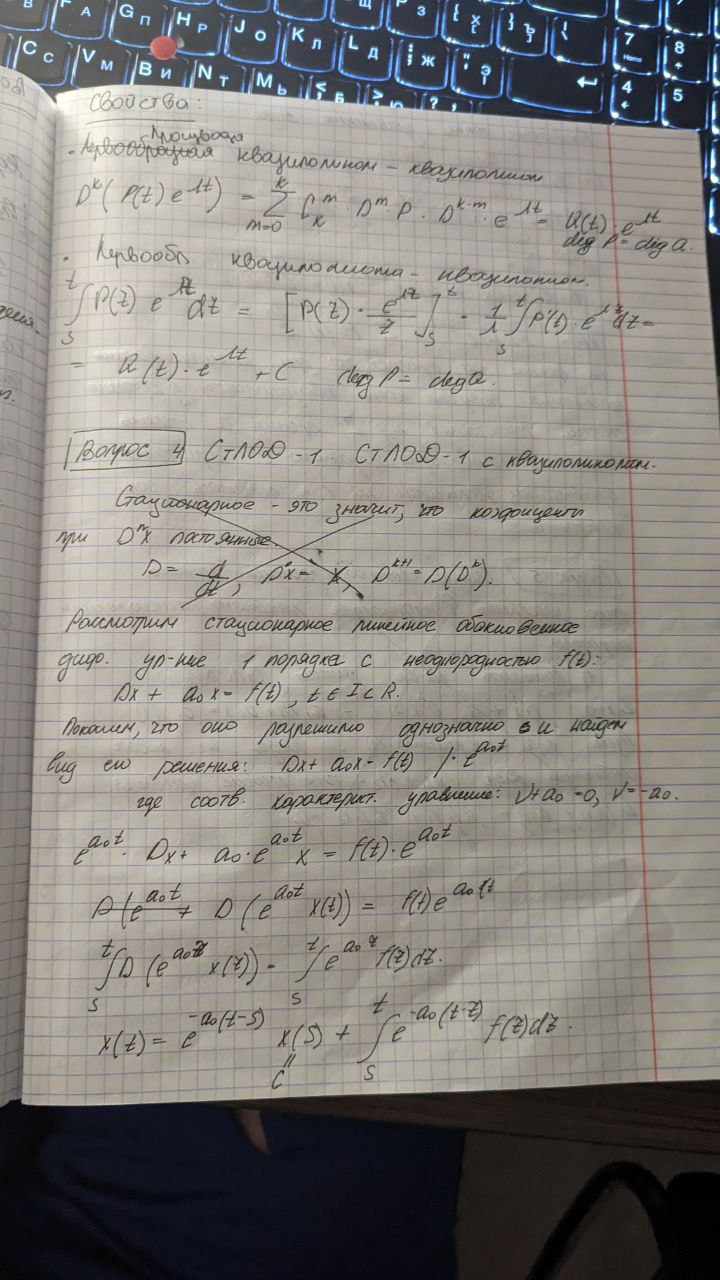 Свойства:
Производя
· Первообразная квазиполином – квазиполином
D^k (P(t) e^{λt}) = \sum_{m=0}^{k} C_k^m · D^m P · D^{k-m} · e^{λt} = Q(t) · e^{λt}
deg P = deg Q.
· Первообр квазиполинома – квазиполином.
\int_s^t P(τ) e^{λτ} dτ = [P(τ) · \frac{e^{λτ}}{τ}]_s^t · \frac{1}{λ} \int_s^t P'(t) · e^{λτ} dτ =
= Q(t) · e^{λt} + C deg P = deg Q.
Вопрос 4 СтЛОДУ-1. СтЛОДУ-1 с квазиполиномом.
Стационарное – это значит, что коэфициенты
при D^m x постоянные.
D = \frac{d}{dt}, D^0 x = x, D^{k+1} = D(D^k).
Рассмотрим стационарное линейное обыкновенное
дифф. ур-ние 1 порядка с неоднородностью f(t):
Dx + a_0 x = f(t), t ∈ I ⊂ R.
Покажем, что оно разрешимо однозначно и найдем
вид его решения: Dx + a_0 x = f(t) / · e^{a_0 t}
где соотв. характерист. уравнение: ν + a_0 = 0, ν = -a_0.
e^{a_0 t} · Dx + a_0 · e^{a_0 t} x = f(t) · e^{a_0 t}
D(e^{a_0 t} + D (e^{a_0 t} x(t)) = f(t) e^{a_0 t}
\int_s^t D (e^{a_0 τ} x(τ)) = \int_s^t e^{a_0 τ} f(τ) dτ.
x(t) = e^{-a_0(t-s)} x(s) + \int_s^t e^{-a_0(t-τ)} f(τ) dτ.
"
C